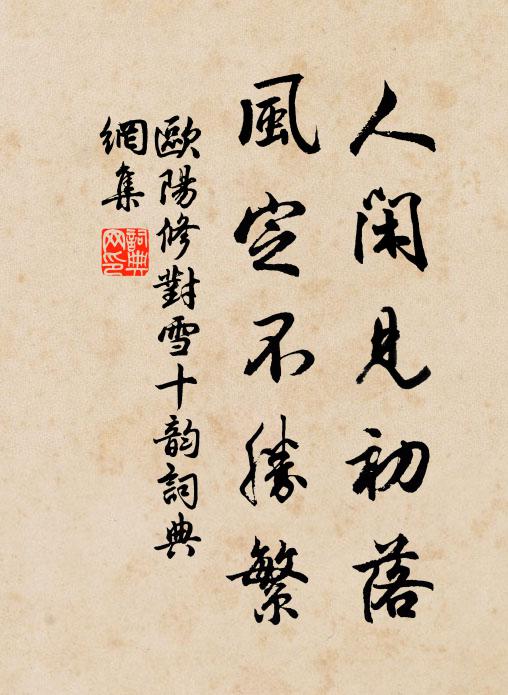 人閑見初落
風定不勝繁
歐陽修對雪十韵詞典
網集
詞典網印